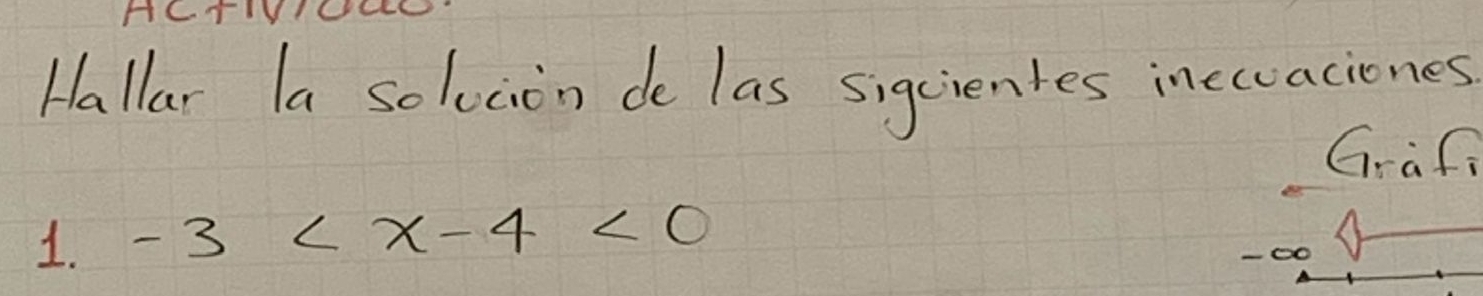 Actividad.
Hallar la solución de las siguientes inecuaciones.
1. -3 < x-4 < 0
-∞